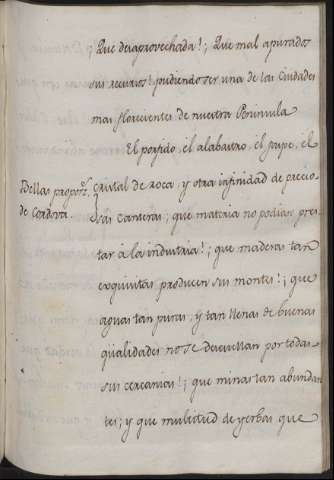 ¡Que desaprovechada!¡Que mal apurados
sus recursos! pudiendo ser una de las Ciudades
mas florecientes de nuestra Peninsula
El porfido, el alabastro, el jaspe, el
Bellas propors.
de Cordova.
cristal de roca, y otra infinidad de precio-
sas canteras; que materia no podian pres-
tar à la industria!; que maderas tan
exquisitas producen sus montes!; que
aguas tan puras, y tan llenas de buenas
qualidades no se descuellan por todas
sus cercanias!; que minas tan abundan-
tes; y que multitud de yerbas que